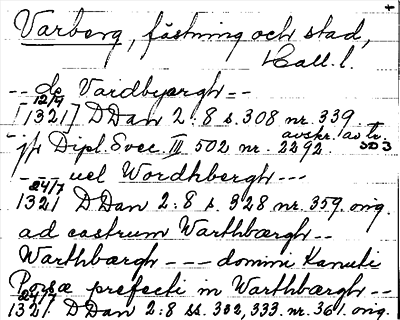 Varberg, fästning och stad,
Hall. l.
-- de Vardbyærgh --
12/4
[1321] DDan 2:8 s. 308 nr. 339.
avskr. av tr.
jfr Dipl. Svec. III 502 nr. 2292. SD 3
--- uel Wordhbergh ---
24/7
1321 DDan 2:8 s. 328 nr. 359. orig.
ad castrum Warthbærgh --
Warthbærgh --- domini Kanuti
Porsæ prefecti in Warthbærgh --
24/7
1321 DDan 2:8 ss. 332, 333. nr. 361. orig.